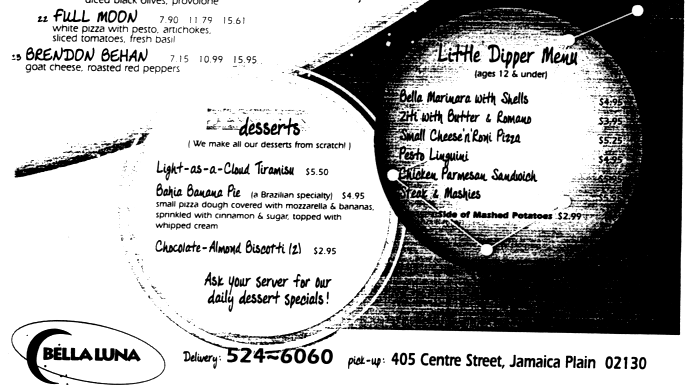 diced black olives, provolone
22 FULL MOON 7.90 11.79 15.61
white pizza with pesto, artichokes,
sliced tomatoes, fresh basil
23 BRENDON BEHAN 7.15 10.99 15.95
goat cheese, roasted red peppers
desserts
( We make all our desserts from scratch! )
Light-as-a-Cloud Tiramisu $5.50
Bahia Banana Pie (a Brazilian specialty) $4.95
small pizza dough covered with mozzarella & bananas,
sprinkled with cinnamon & sugar, topped with
whipped cream
Chocolate-Almond Biscotti (2) $2.95
Ask your server for our
daily dessert specials!
Little Dipper Menu
(ages 12 & under)
Bella Marinara with Shells $4.95
Ziti with Butter & Romano $3.95
Small Cheese'n'Roni Pizza $5.25
Pesto Linguini $4.95
Chicken Parmesan Sandwich
Steak & Mashies
Side of Mashed Potatoes $2.99
BELLA LUNA
Delivery: 524-6060 pick-up: 405 Centre Street, Jamaica Plain 02130